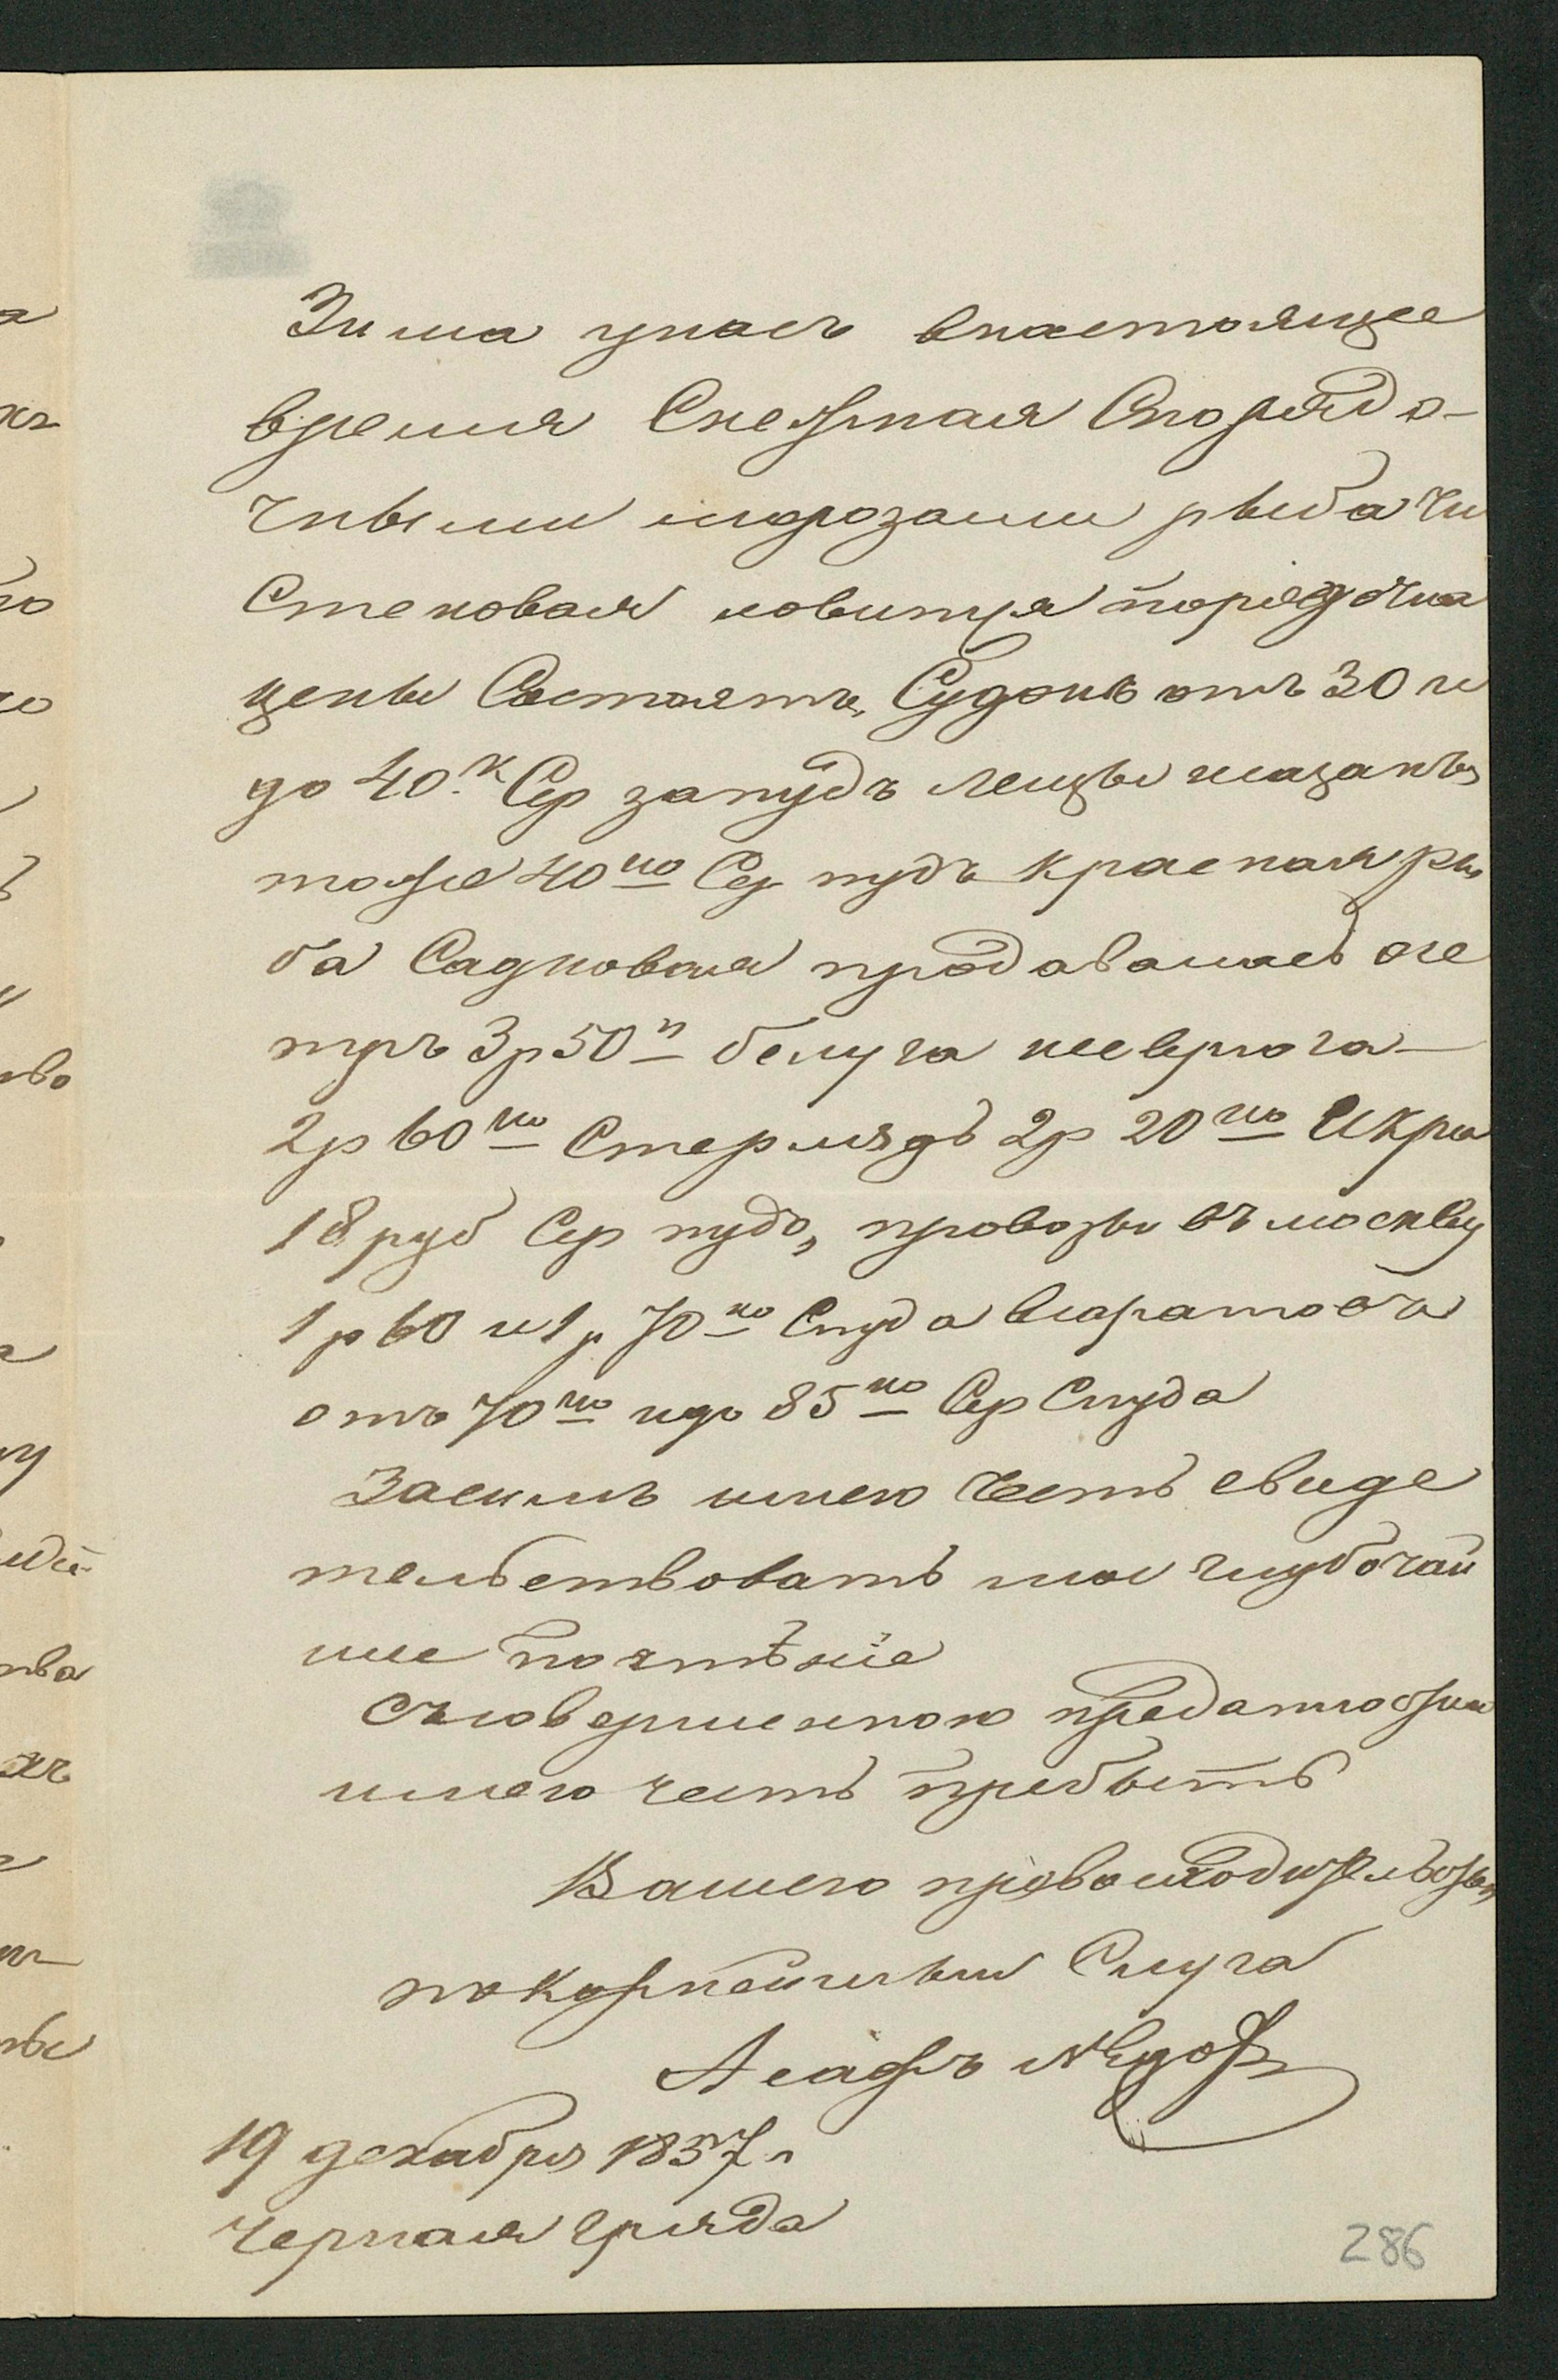 Зима унасъ внастоящее
время Снежная Споредо-
чными морозами рыба чи
Стековая ловитця поредочна
цены Состоятъ, Судокъ отъ 30 и
до 40.к Сер запудъ лещь исазанъ
тоже 40ко Се пудъ красная ры
ба Садковая продавалась осе
тръ 3р50к белуга исеврюга—
2р60ко Стерлядь 2р 20ко Икра
18 руб Сер пудъ, провозы въ москву
1р60 и1р 70ко Спуда всаратовъ
отъ 70ко идо 85ко Сер Спуда
Засимъ имею честь свиде
тельствовать мое глубочай
шие почтѣніе
Съсовершенною преданностию
имею честь пребыть
Вашего превосходительства
покорнейшый Слуга
19 декабря 1857 г
Черная Гряда
286